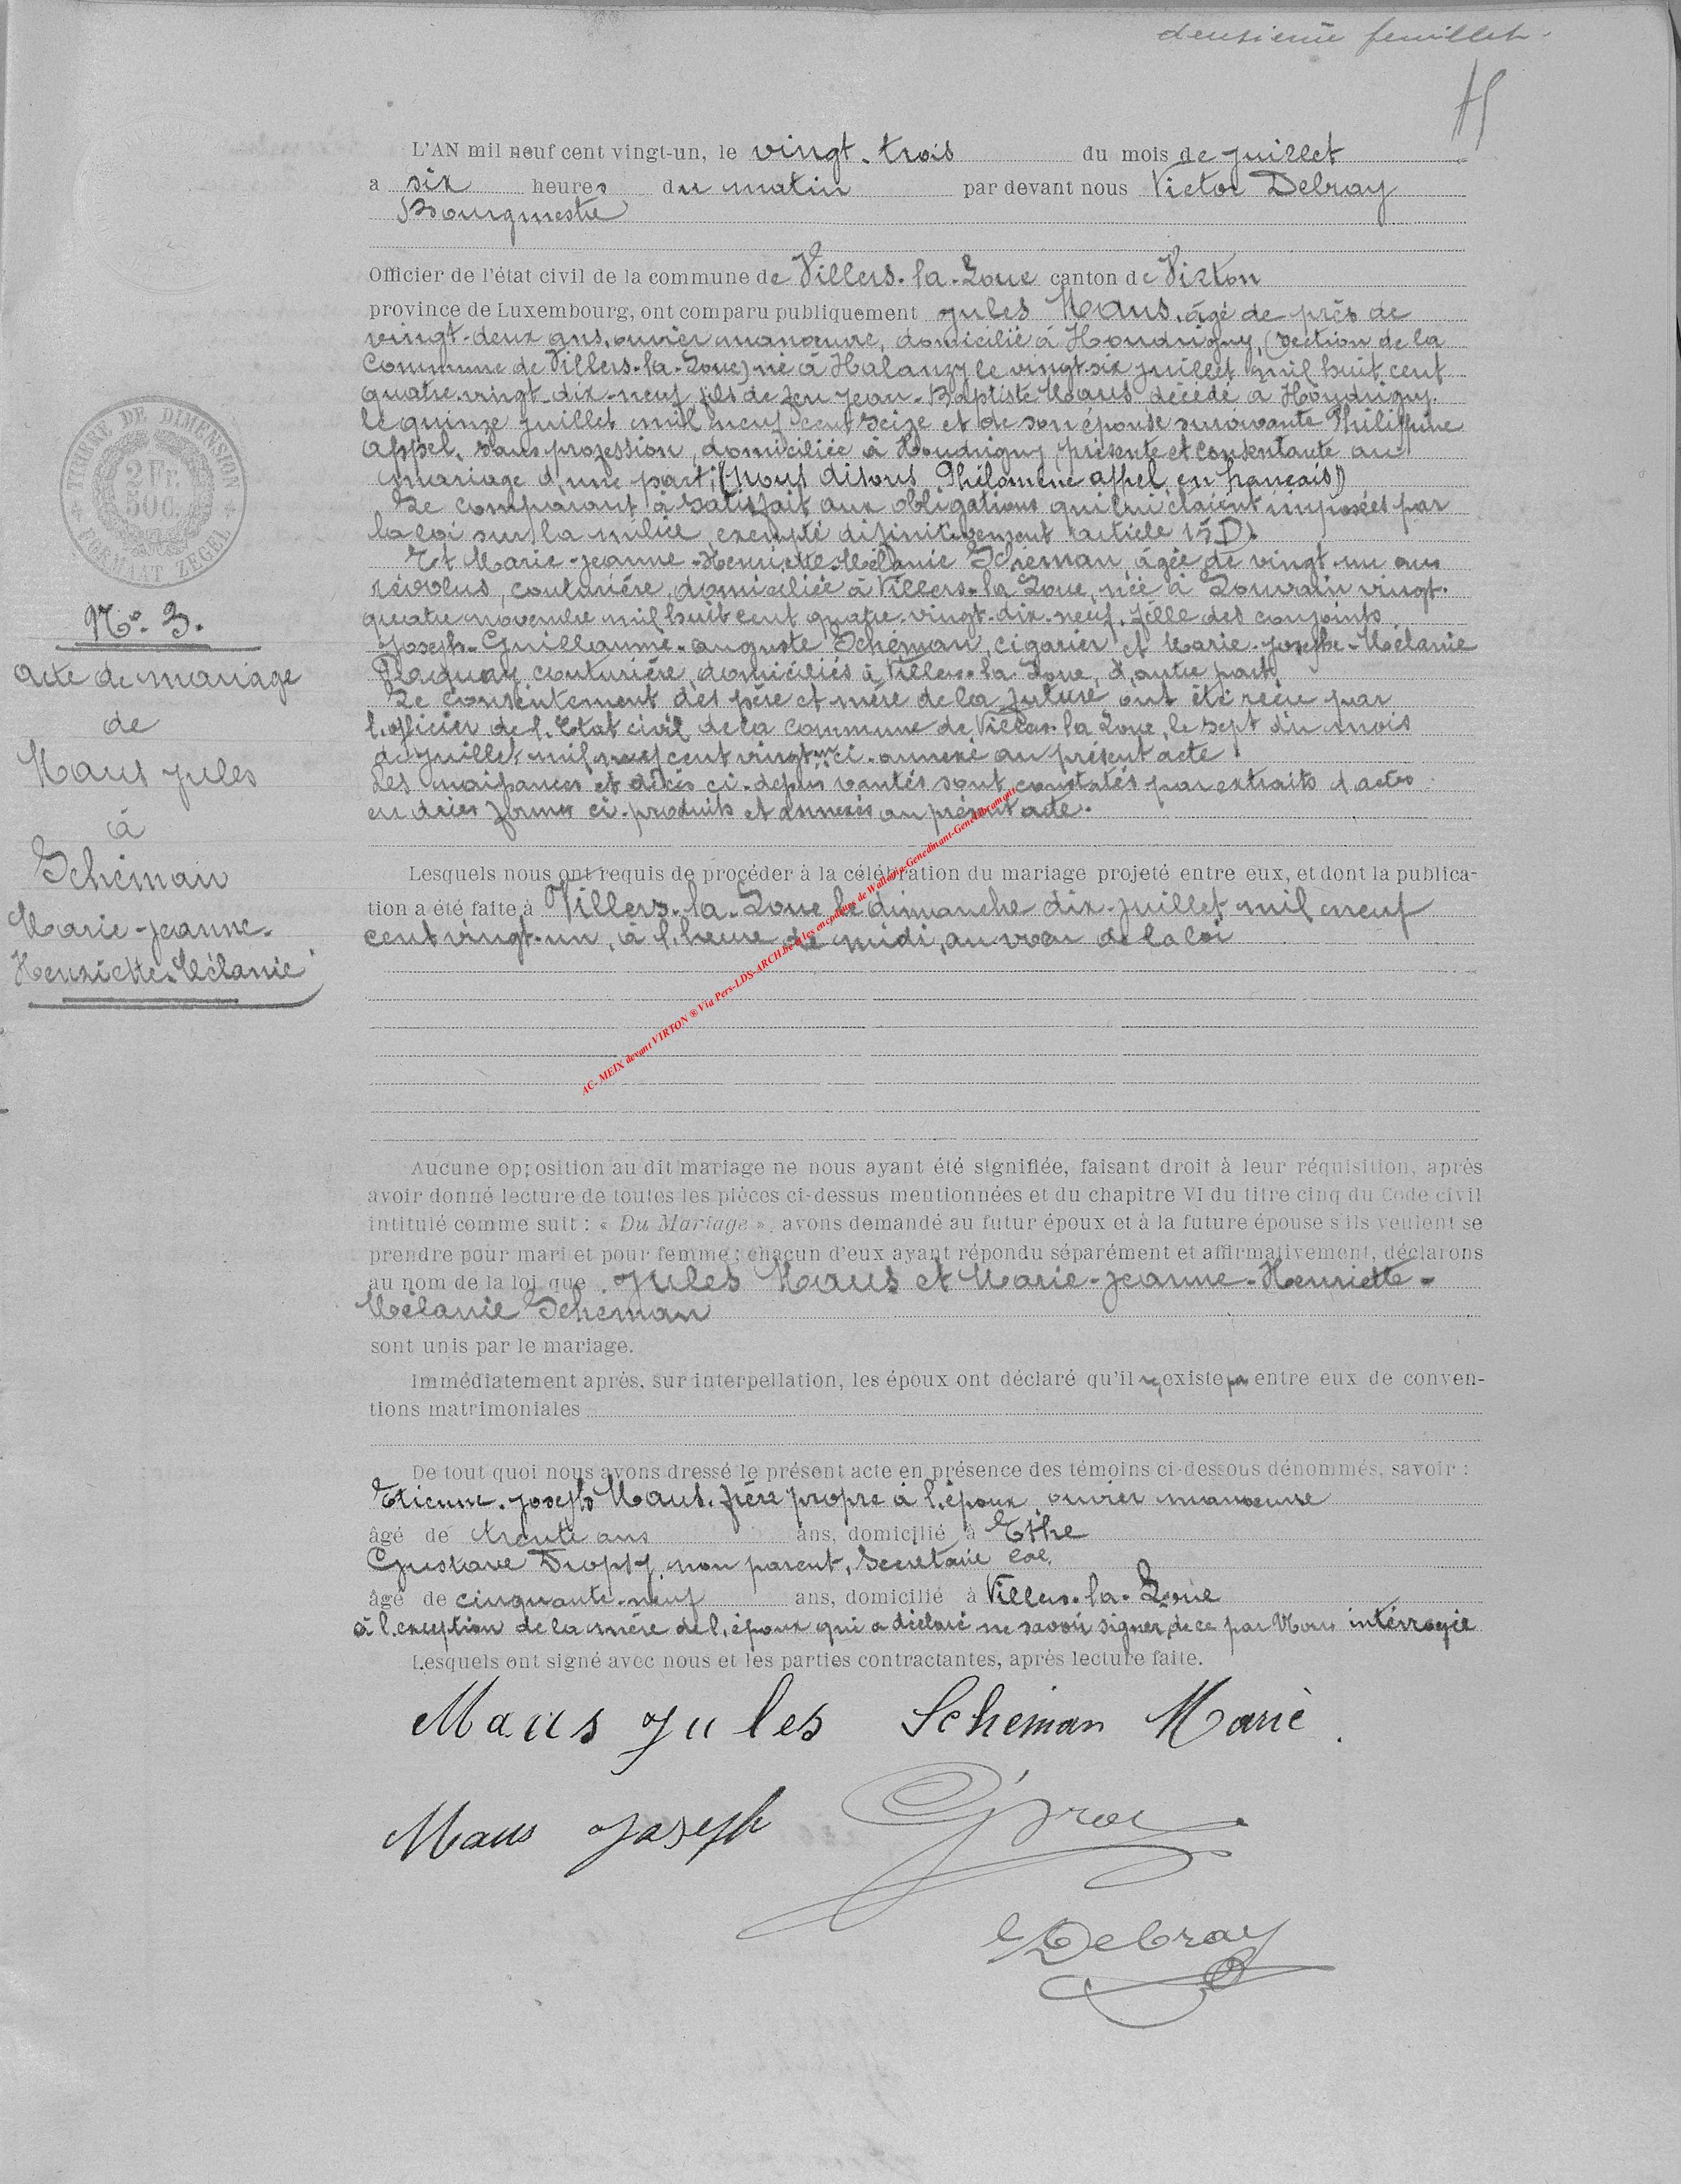 deuxième feuillet.
TIMBRE DE DIMENSION
2 Fr.
50 C.
FORMAAT ZEGEL
No. 3.
Acte de mariage
de
Maus Jules
à
Schéman
Marie-Jeanne-
Henriette-Mélanie
L'AN mil neuf cent vingt-un, le vingt-trois du mois de juillet
a six heures du matin par devant nous Victor Debray
Bourgmestre
Officier de l'état civil de la commune de Villers-la-Loue canton de Virton
province de Luxembourg, ont comparu publiquement Jules Maus, âgé de près de
vingt-deux ans, ouvrier manœuvre, domicilié à Houdrigny, (section de la
commune de Villers-la-Loue) né à Halanzy le vingt-six juillet mil huit cent
quatre-vingt-dix-neuf, fils de feu Jean-Baptiste Maus décédé à Houdrigny
le quinze juillet mil neuf cent seize et de son épouse survivante Philippine
Appel, sans profession, domiciliée à Houdrigny présente et consentante au
mariage d'une part; (nous disons Philomène Appel en français)
Le comparant a satisfait aux obligations qui lui étaient imposées par
la loi sur la milice, exempté définitivement article 15 D.
Et Marie-Jeanne-Henriette-Mélanie Schéman, âgée de vingt-un ans
révolus, couturière, domiciliée à Villers-la-Loue, née à Louvain vingt-
quatre novembre mil huit cent quatre-vingt-dix-neuf, fille des conjoints
Joseph-Guillaume-Auguste Schéman, cigarier et Marie-Josephe-Mélanie
couturière, domiciliés à Villers-la-Loue, d'autre part
Le consentement des père et mère de la future ont été reçu par
l'officier de l'Etat civil de la commune de Villers-la-Loue, le sept du mois
de juillet mil neuf cent vingt-un ci-annexé au présent acte.
Les naissances et décès ci-dessus vantés sont constatés par extraits d'actes
en dues formes ci-produits et annexés au présent acte.
Lesquels nous ont requis de procéder à la célébration du mariage projeté entre eux, et dont la publica-
tion a été faite à Villers-la-Loue le dimanche dix-juillet mil neuf
cent vingt-un, à l'heure de midi, au vœu de la loi
AC- MEIX devant VIRTON ® Via Pers-LDS-ARCH.be & les encodeurs de Wallonia-Genedinant-Genealibramont
Aucune opposition au dit mariage ne nous ayant été signifiée, faisant droit à leur réquisition, après
avoir donné lecture de toutes les pièces ci-dessus mentionnées et du chapitre VI du titre cinq du Code civil
intitulé comme suit : « Du Mariage », avons demandé au futur époux et à la future épouse s'ils veulent se
prendre pour mari et pour femme; chacun d'eux ayant répondu séparément et affirmativement, déclarons
au nom de la loi que Jules Maus et Marie-Jeanne-Henriette-
Mélanie Schéman
sont unis par le mariage.
Immédiatement après, sur interpellation, les époux ont déclaré qu'il n'existe pas entre eux de conven-
tions matrimoniales
De tout quoi nous avons dressé le présent acte en présence des témoins ci-dessous dénommés, savoir :
Etienne-Joseph Maus, frère propre à l'époux ouvrier manœuvre
âgé de trente ans ans, domicilié à Ethe
Gustave Dropsy, non parent, Secrétaire cal.
âgé de cinquante-neuf ans, domicilié à Villers-la-Loue
à l'exception de la mère de l'époux qui a déclaré ne savoir signer, de ce par Nous intérrogée
Lesquels ont signé avec nous et les parties contractantes, après lecture faite.
Maus Jules Schéman Marie
Maus Joseph
Debray